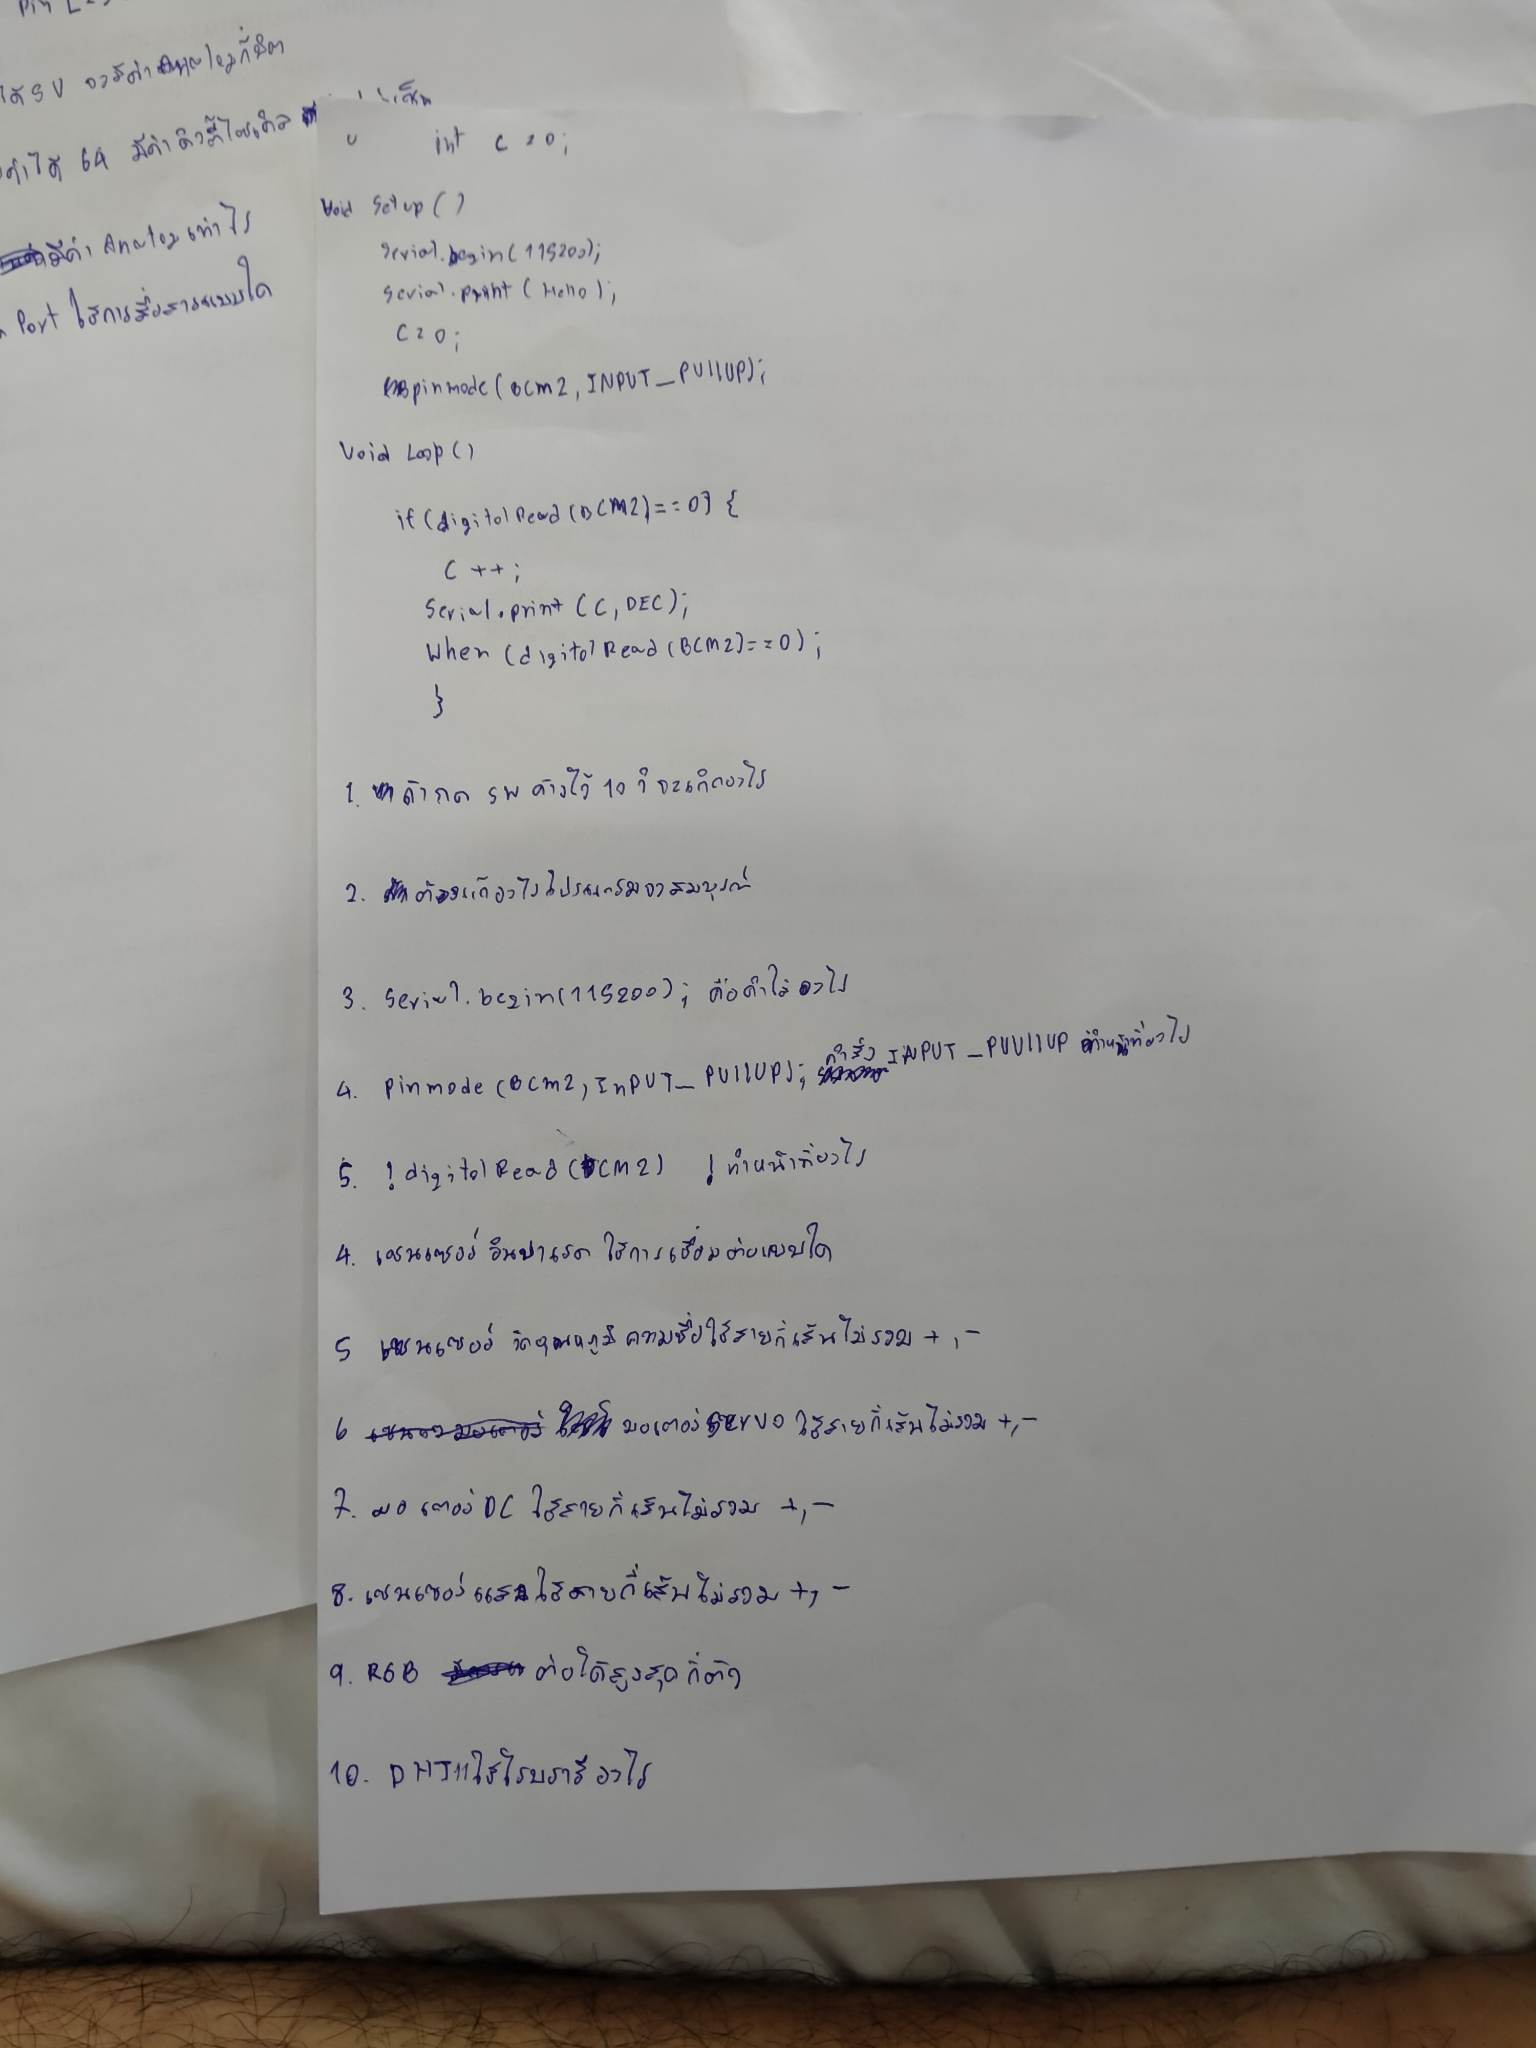 Pin
ได้ 5V จะมีค่า Analog กี่บิต
ค่าได้ 64 มีค่า
มีค่า Analog เท่าไร
Port ใช้การสื่อสารแบบใด
int C = 0;
Void Setup()
Serial.begin(115200);
Serial.print(Hello);
C = 0;
pinmode(BCM2, INPUT_PUllUP);
Void Loop()
if(digitalRead(BCM2)==0) {
C ++;
Serial.print(C, DEC);
When (digitalRead(BCM2)==0);
}
1. ถ้ากด SW ค้างไว้ 10 วิ จะเกิดอะไร
2. ต้องแก้อะไรโปรแกรมจะสมบูรณ์
3. Serial.begin(115200); คือค่าใช้อะไร
4. Pinmode(BCM2, InPUT_PUllUP); คำสั่ง INPUT_PUUllUP ทำหน้าที่อะไร
5. !digitalRead(BCM2) ! ทำหน้าที่อะไร
4. เซนเซอร์ อินฟาเรด ใช้การเชื่อมต่อแบบใด
5 เซนเซอร์ วัดอุณหภูมิ ความชื้อใช้สายกี่เส้นไม่รวม +,-
6 มอเตอร์ Servo ใช้สายกี่เส้นไม่รวม +,-
7. มอเตอร์ DC ใช้สายกี่เส้นไม่รวม +,-
8. เซนเซอร์ แสงใช้สายกี่เส้นไม่รวม +,-
9. RGB ต่อได้สูงสุดกี่ตัว
10. DHT11ใช้ไรบรารี่อะไร